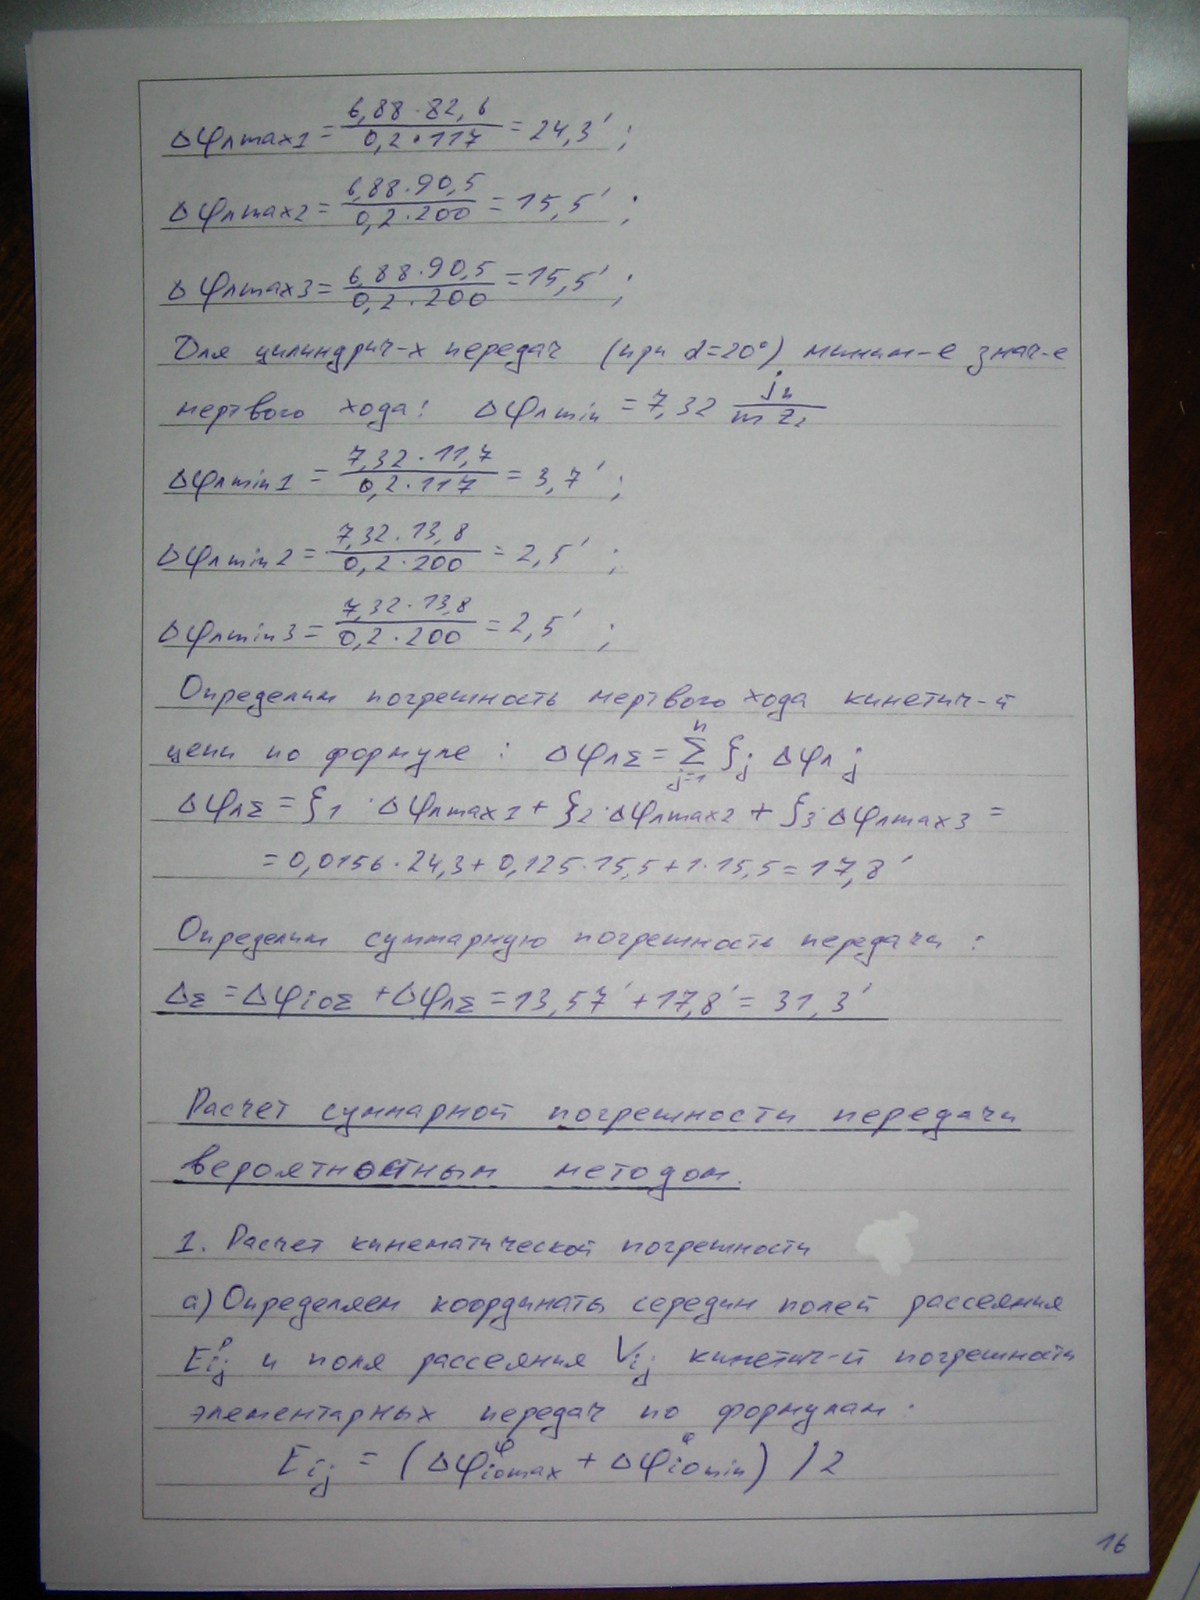 Δφлmax1 = 6,88·82,6 / 0,2·117 = 24,3′ ;
Δφлmax2 = 6,88·90,5 / 0,2·200 = 15,5′ ;
Δφлmax3 = 6,88·90,5 / 0,2·200 = 15,5′ ;
Для цилиндрич-х передач (при α=20°) миним-е знач-е
мертвого хода: Δφлmin = 7,32 jn / m z₂
Δφлmin1 = 7,32·11,7 / 0,2·117 = 3,7′ ;
Δφлmin2 = 7,32·13,8 / 0,2·200 = 2,5′ ;
Δφлmin3 = 7,32·13,8 / 0,2·200 = 2,5′ ;
Определим погрешность мертвого хода кинетич-й
цепи по формуле : ΔφлΣ = Σ(j=1…n) ξj Δφлj
ΔφлΣ = ξ1 · Δφлmax1 + ξ2 · Δφлmax2 + ξ3 · Δφлmax3 =
= 0,0156·24,3 + 0,125·15,5 + 1·15,5 = 17,8′
Определим суммарную погрешность передачи :
ΔΣ = ΔφioΣ + ΔφлΣ = 13,57′ + 17,8′ = 31,3′
Расчет суммарной погрешности передачи
вероятностным методом.
1. Расчет кинематической погрешности
а) Определяем координаты середин полей рассеяния
Eφij и поля рассеяния Vij кинетич-й погрешности
элементарных передач по формулам :
Eij = (Δφφiomax + Δφφiomin) / 2
16